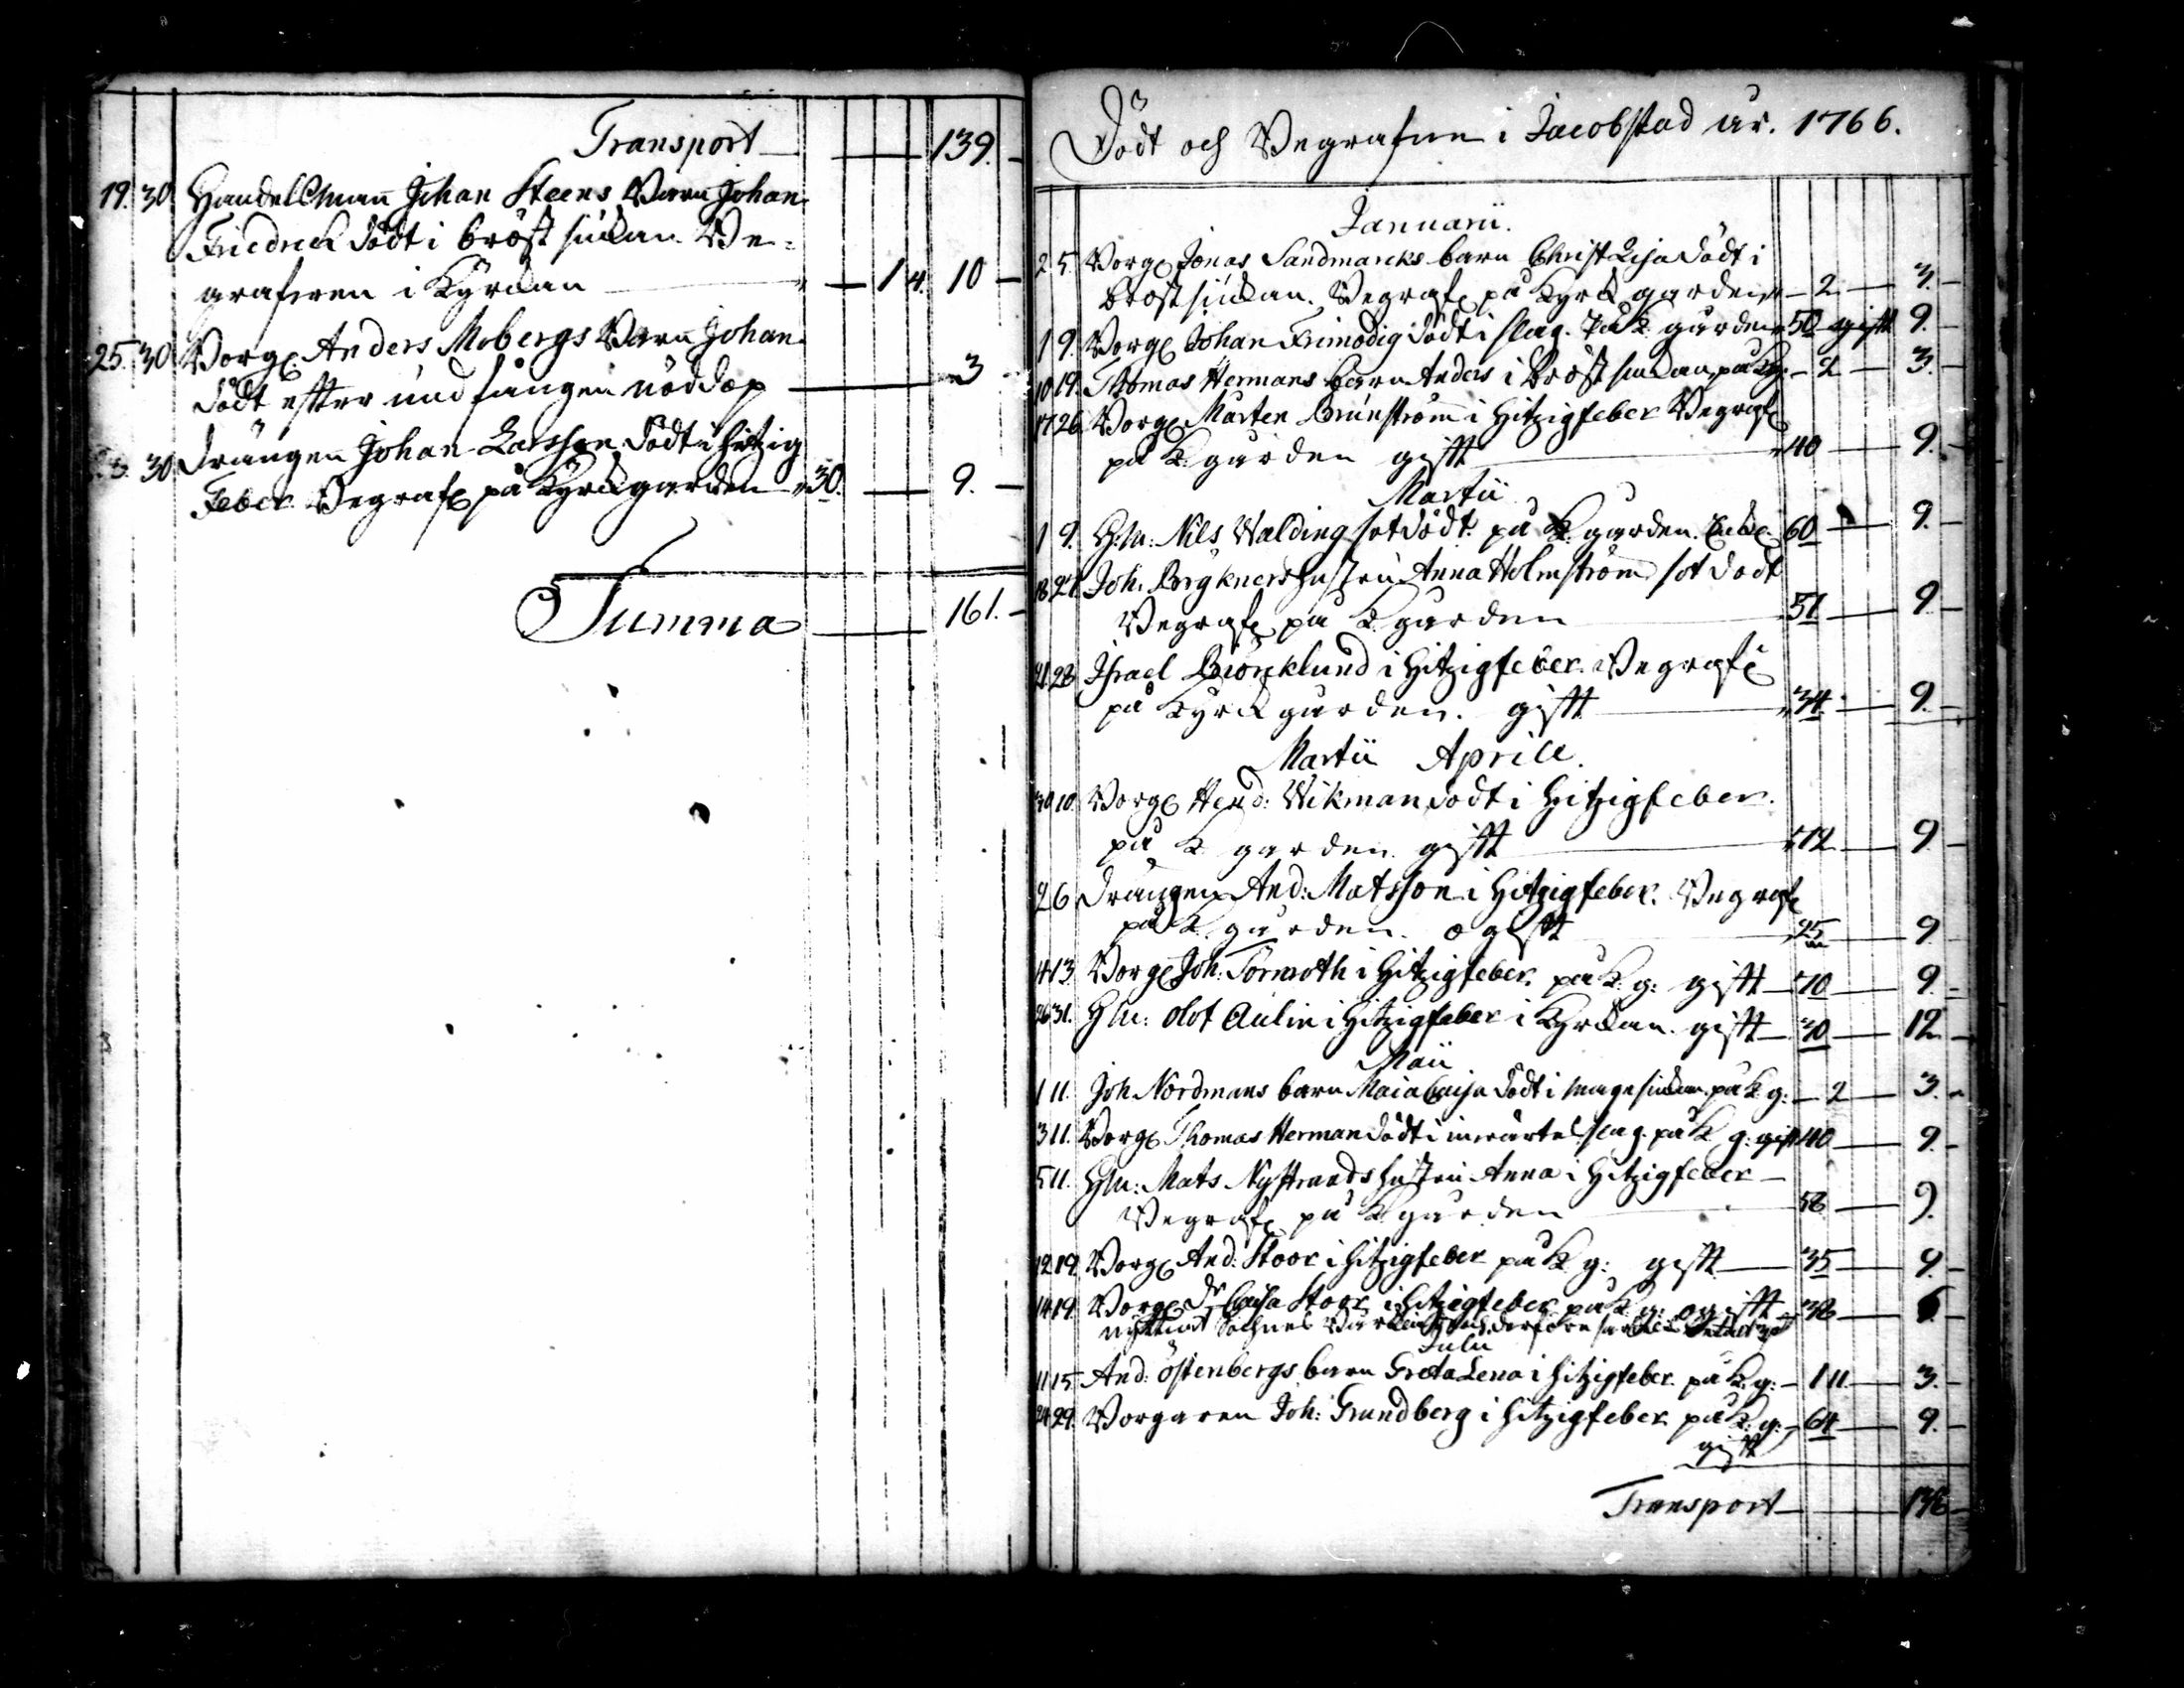 Transport 139.
19. 30 Handelsman Johan Steens Barn Johan
Friedrick Död i bröst siukan Be=
grafven i Kyrkan 1 4. 10
25. 30 Borg. Anders Mobergs Barn Johan
död efter undfången nöddop 3
30 Drängen Johan Larsson död i hitzig
Feber Begrafn på Kyrkgården 30. 9.
Summa 161.
Död och Begrafne i Jacobstad år. 1766.
Januarii.
2 5. Borg Jonas Sandmarcks barn Christ Lisa död i
bröstsiukan. Begrafn på Kyrkgården 2 3.
1 9. Borg Johan Frimodig död i slag. på K gården 50 gift 9.
10 19. Thomas Hermans barn Anders i bröstsiukan på Kg. 2 3.
17 26. Borg Mårten Brunström i Hitzigfeber Begrafn
på K: gården gift 40 9.
Martii
1 9. H:m: Nils Walding sot död på K. gården. 60 9.
18 21. Joh. Brykners hustru Anna Holmström sot död
Begrafn på K gården 51 9
21 23 Israel Biörcklund i Hitzigfeber. Begrafn
på Kyrkgården. gift 34. 9.
Martii Aprill.
30 10. Borg Hend: Wikman död i Hitzigfeber.
på K gården gift 72 9
2 6 Drängen And: Matsson i Hitzigfeber. Begrafn
på K. gården. ogift 25 9
4 13. Borg Joh: Törnroth i Hitzigfeber. på K: g: gift 70 9.
26 31. Hm: Olof Aulin i Hitzigfeber i Kyrkan. gift 30 12
Maii
1 11. Joh Nordmans barn Maia Caisa död i magesiukan på K g: 2 3.
3 11. Borg Thomas Herman död i slag. på K g: gift 40 9.
5 11. Hm: Mats Nystrands hustru Anna i Hitzigfeber
Begrafn på K gården 58 9.
12 19. Borg And: Stoor i hitzigfeber på K g: gift 35 9.
14 19. Borg Dr Caisa Stoor i Hitzigfeber på K: g: ogift 38 6
Julii
11 15. And: Östenbergs barn Greta Lena i hitzigfeber på K: g: 1 11 3.
24 29. Borgaren Joh: Grundberg i hitzigfeber på K: g: 64 9.
gift
Transport 138